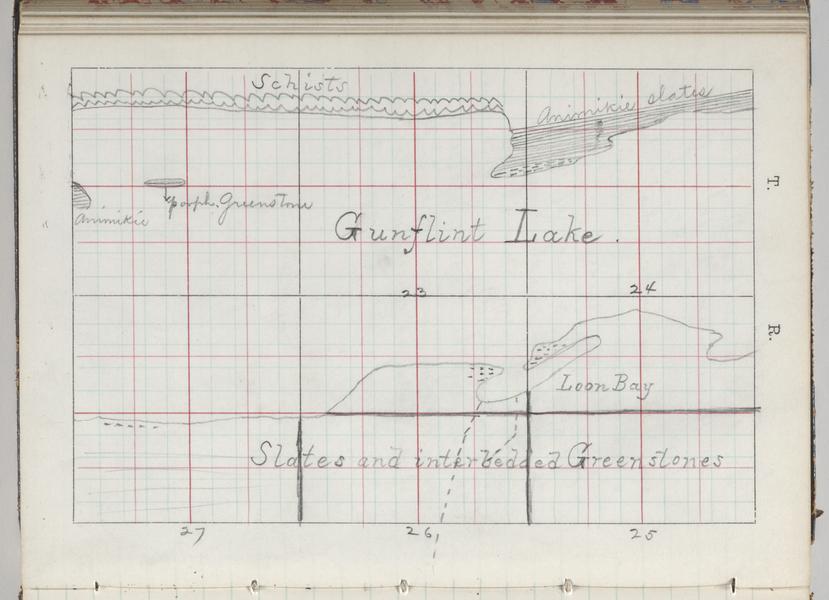 Schists
Animikie slates
T.
Animikie
porph. Greenstone
Gunflint Lake.
23
24
R.
Loon Bay
Slates and interbedded Greenstones
27
26
25